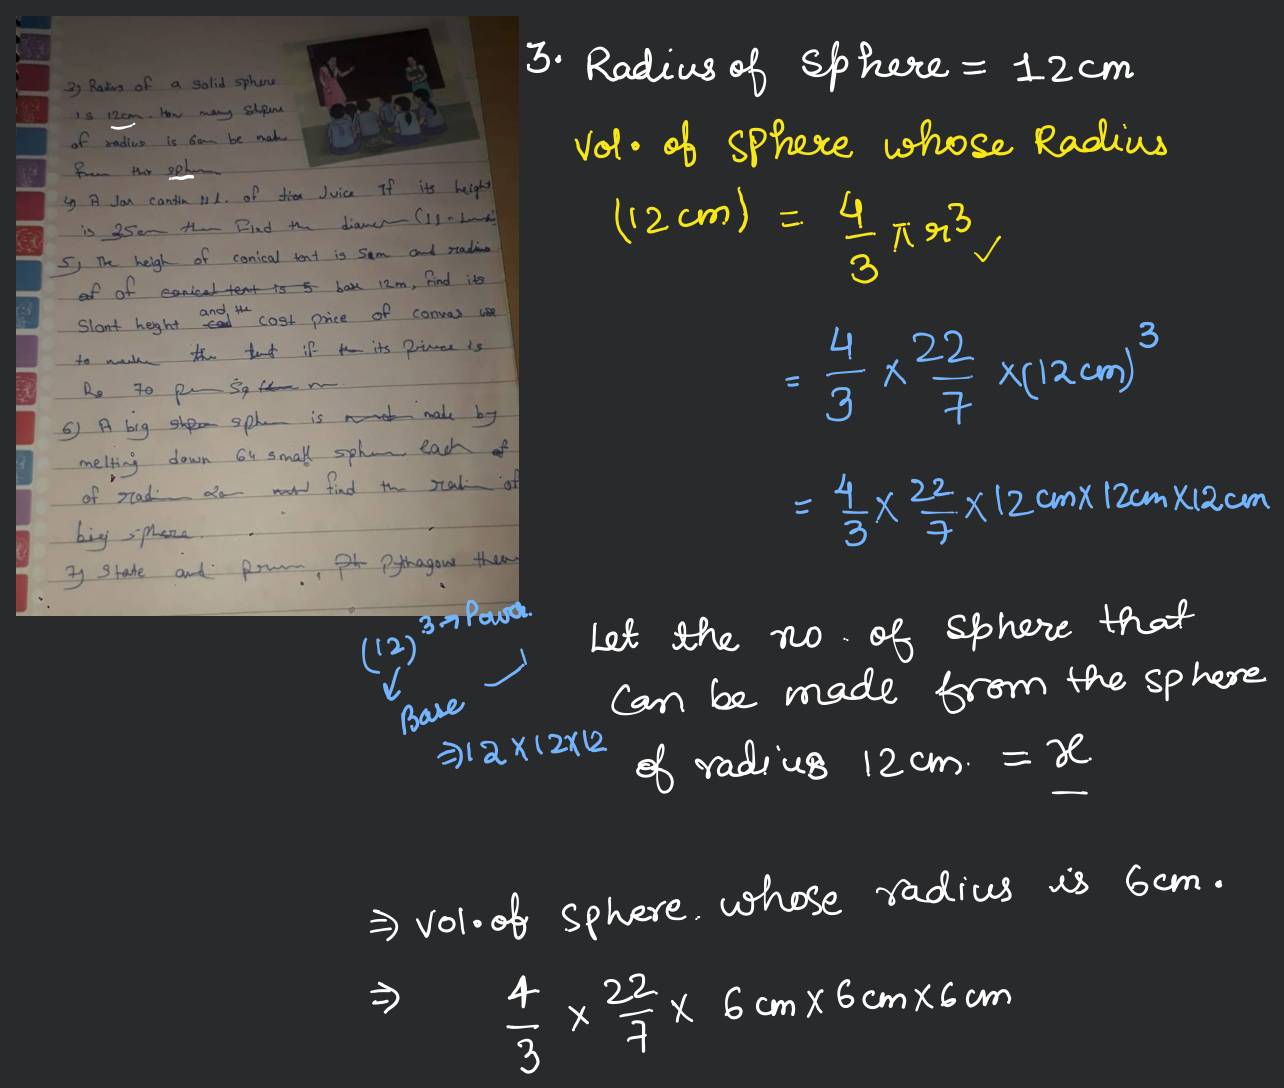 3) Radius of a solid sphere
is 12cm. How many Shpere
of radius is 6cm be made
from this sphere
4) A Jar contin 11 l. of Juice If its height
is 35cm then Find the
5) The heigh of conical tent is 5m and radius
of of conical tent is 5 base 12m, find its
Slant heght and the cost price of canvas use
to make the tent if the its price is
Rs 70 per Sq m
6) A big sphere is made by
melting down 64 small sphere each of
of radius find the radius of
big sphere.
7) State and Pythagors them
3. Radius of sphere = 12cm
Vol. of sphere whose Radius
(12cm) = 4/3 πr³ ✓
= 4/3 × 22/7 × (12cm)³
= 4/3 × 22/7 × 12cm × 12cm × 12cm
(12)³ → Power.
Base
⇒ 12 × 12 × 12
Let the no. of sphere that
can be made from the sphere
of radius 12cm. = x
⇒ Vol. of sphere. whose radius is 6cm.
⇒ 4/3 × 22/7 × 6cm × 6cm × 6cm